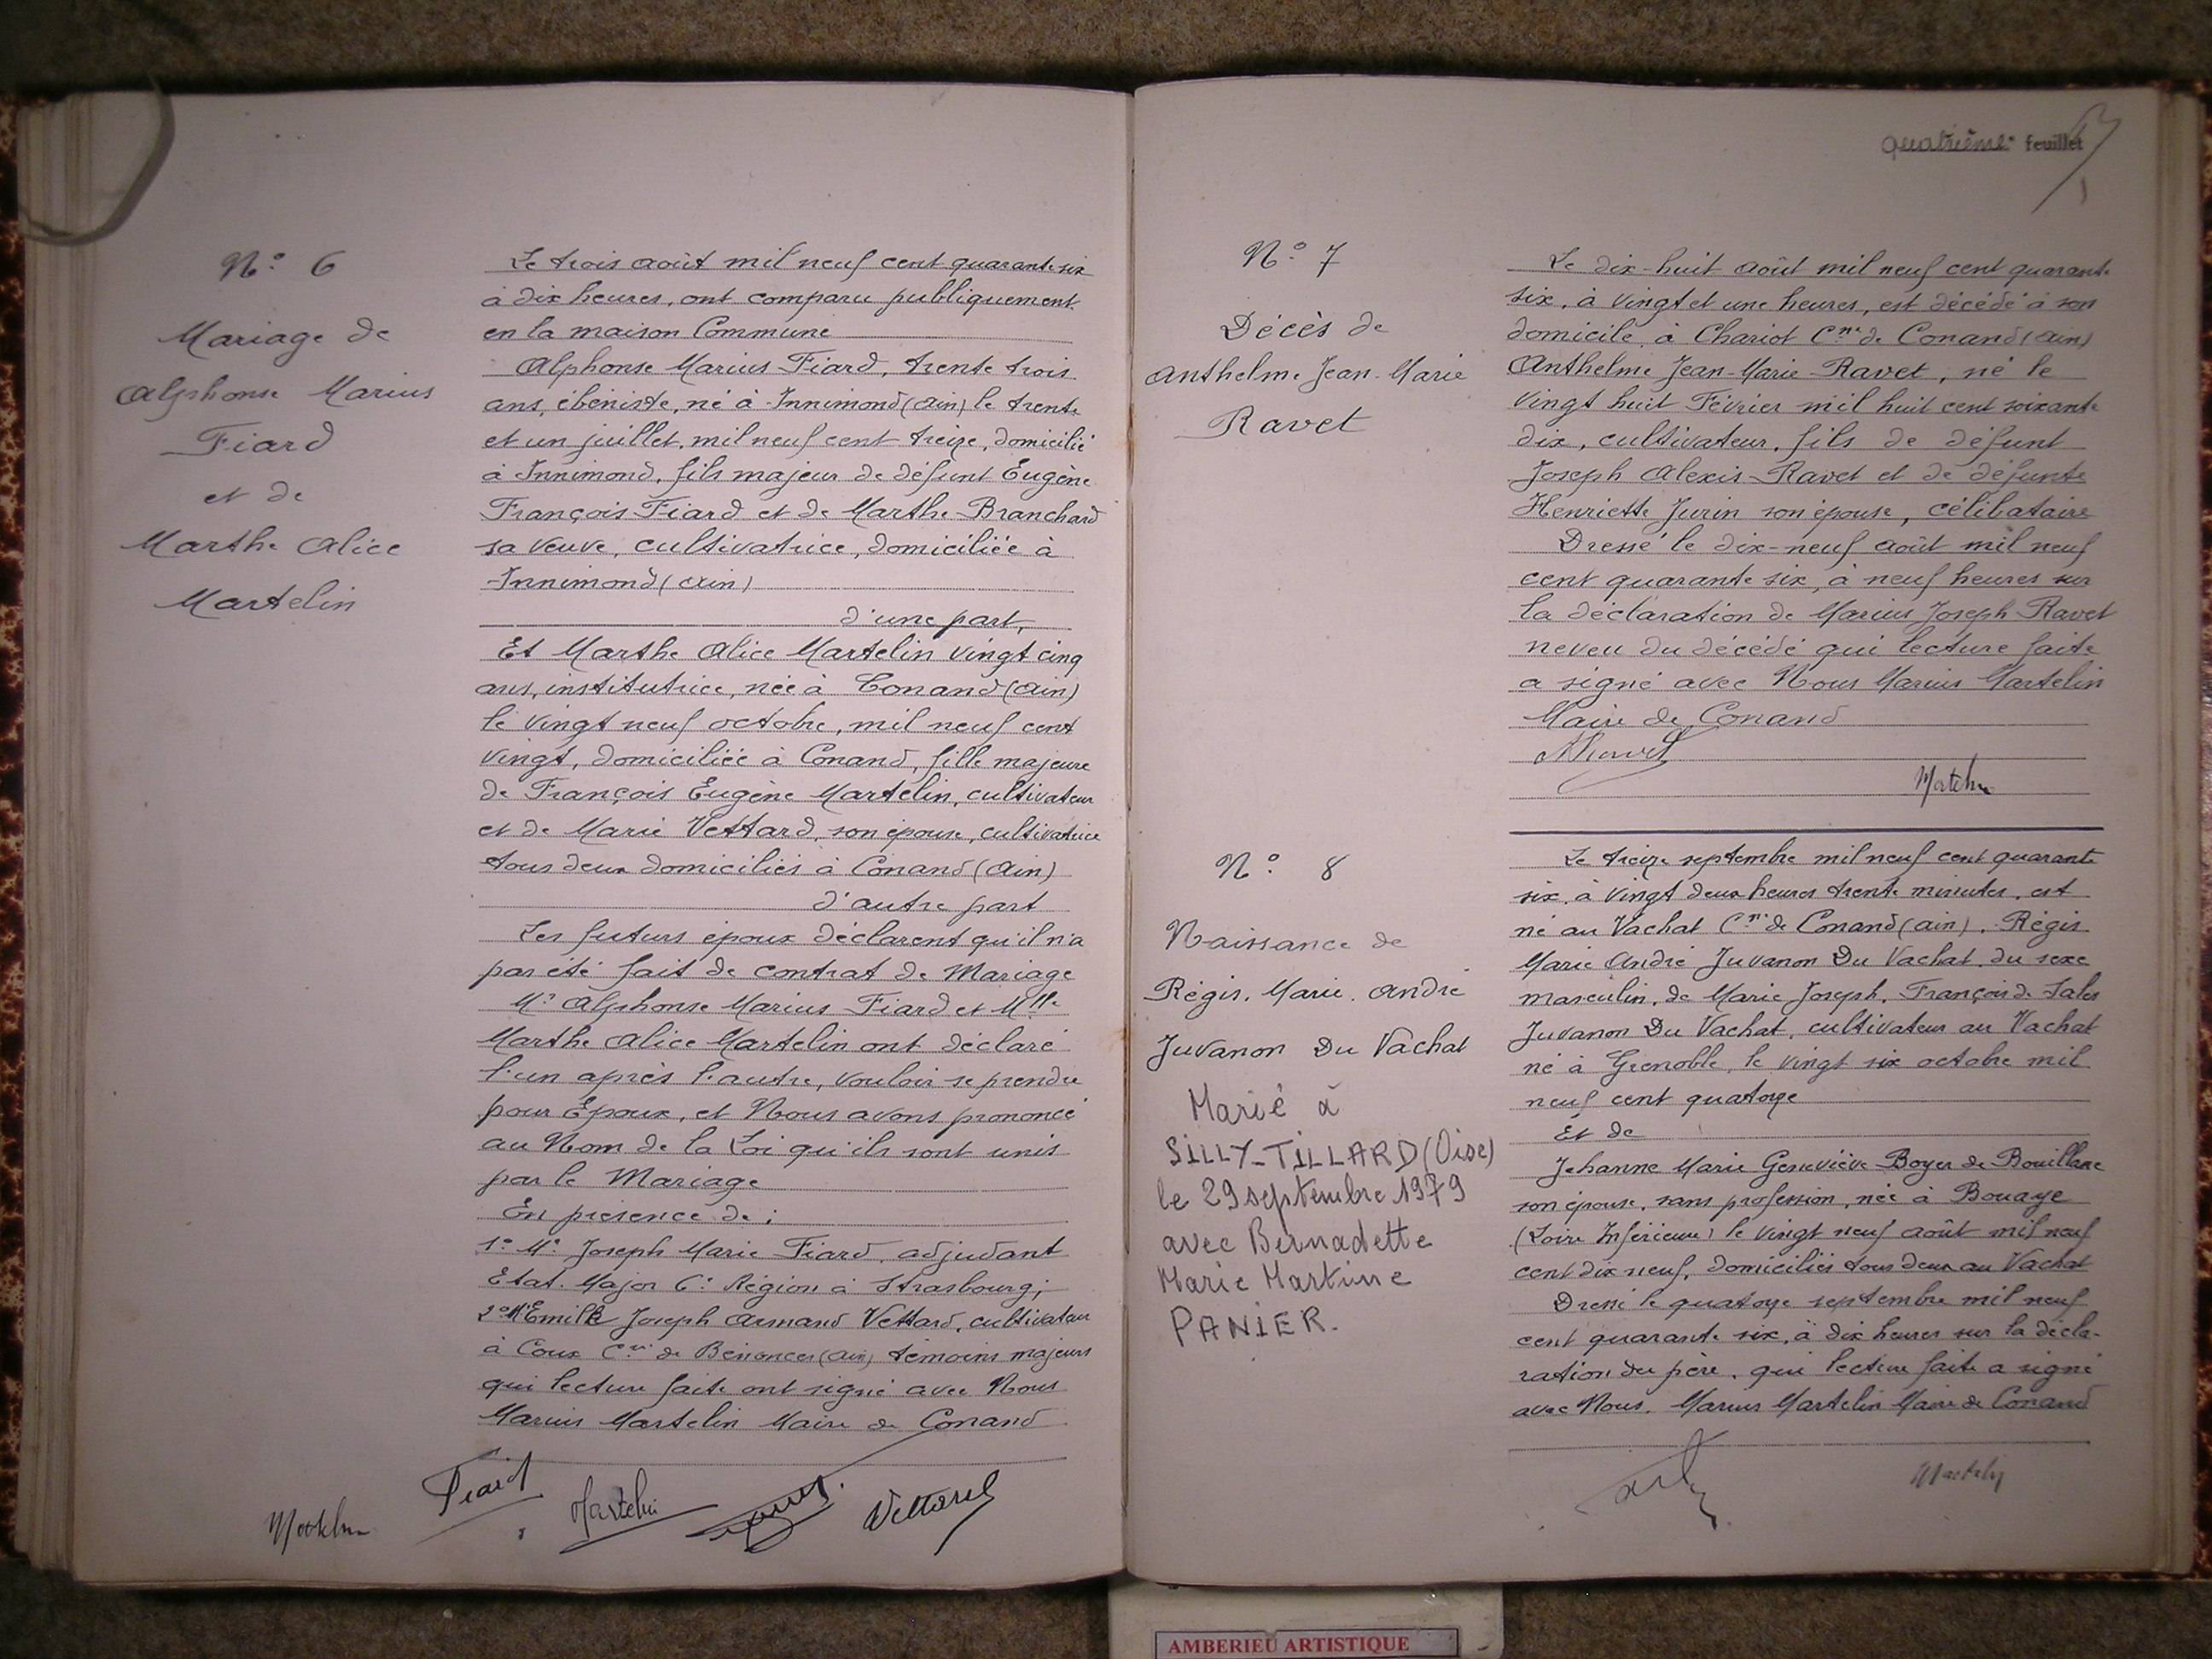 N° 6
Mariage de
Alphonse Marius
Fiard
et de
Marthe Alice
Martelin
Le trois août mil neuf cent quarante six
à dix heures, ont comparu publiquement
en la maison Commune
Alphonse Marius Fiard, trente trois
ans, ébéniste, né à Innimond (Ain) le trente
et un juillet, mil neuf cent treize, domicilié
à Innimond, fils majeur de défunt Eugène
François Fiard et de Marthe Branchard
sa veuve, cultivatrice, domiciliée à
Innimond (Ain)
d'une part,
Et Marthe Alice Martelin vingt cinq
ans, institutrice, née à Conand (Ain)
le vingt neuf octobre, mil neuf cent
vingt, domiciliée à Conand, fille majeure
de François Eugène Martelin, cultivateur
et de Marie Vettard, son épouse, cultivatrice
tous deux domiciliés à Conand (Ain)
d'autre part
Les futurs époux déclarent qu'il n'a
pas été fait de contrat de Mariage
Mr Alphonse Marius Fiard et Mlle
Marthe Alice Martelin ont déclaré
l'un après l'autre, vouloir se prendre
pour Époux, et Nous avons prononcé
au Nom de la Loi qu'ils sont unis
par le Mariage
En présence de :
1° Mr Joseph Marie Fiard, adjudant
Etat-Major 6e Région à Strasbourg;
2° Mr Emile Joseph Armand Vettard, cultivateur
à Coux Cne de Bénonces (Ain) témoins majeurs
qui lecture faite ont signé avec Nous
Marius Martelin Maire de Conand
Fiard
Martelin
Vettard
quatrième feuillet
N° 7
Décès de
Anthelme Jean-Marie
Ravet
Le dix-huit août mil neuf cent quarante
six, à vingt et une heures, est décédé à son
domicile à Chariot Cne de Conand (Ain)
Anthelme Jean-Marie Ravet, né le
vingt huit Février mil huit cent soixante
dix, cultivateur, fils de défunt
Joseph Alexis Ravet et de défunte
Henriette Jurin son épouse, célibataire
Dressé le dix-neuf août mil neuf
cent quarante six, à neuf heures sur
la déclaration de Marius Joseph Ravet
neveu du décédé qui lecture faite
a signé avec Nous Marius Martelin
Maire de Conand
N° 8
Naissance de
Régis, Marie, André
Juvanon Du Vachat
Marié à
SILLY-TILLARD (Oise)
le 29 septembre 1979
avec Bernadette
Marie Martine
PANIER.
Le treize septembre mil neuf cent quarante
six, à vingt deux heures trente minutes, est
né au Vachat Cne de Conand (Ain), Régis
Marie André Juvanon Du Vachat, du sexe
masculin, de Marie Joseph, François de Sales
Juvanon Du Vachat, cultivateur au Vachat
né à Grenoble, le vingt six octobre mil
neuf cent quatorze
Et de
Jehanne Marie Geneviève Boyer de Bouillane
son épouse, sans profession, née à Bouaye
(Loire Inférieure) le vingt neuf août mil neuf
cent dix neuf, domiciliés tous deux au Vachat
Dressé le quatorze septembre mil neuf
cent quarante six, à dix heures sur la décla-
ration du père, qui lecture faite a signé
avec Nous, Marius Martelin Maire de Conand
AMBERIEU ARTISTIQUE